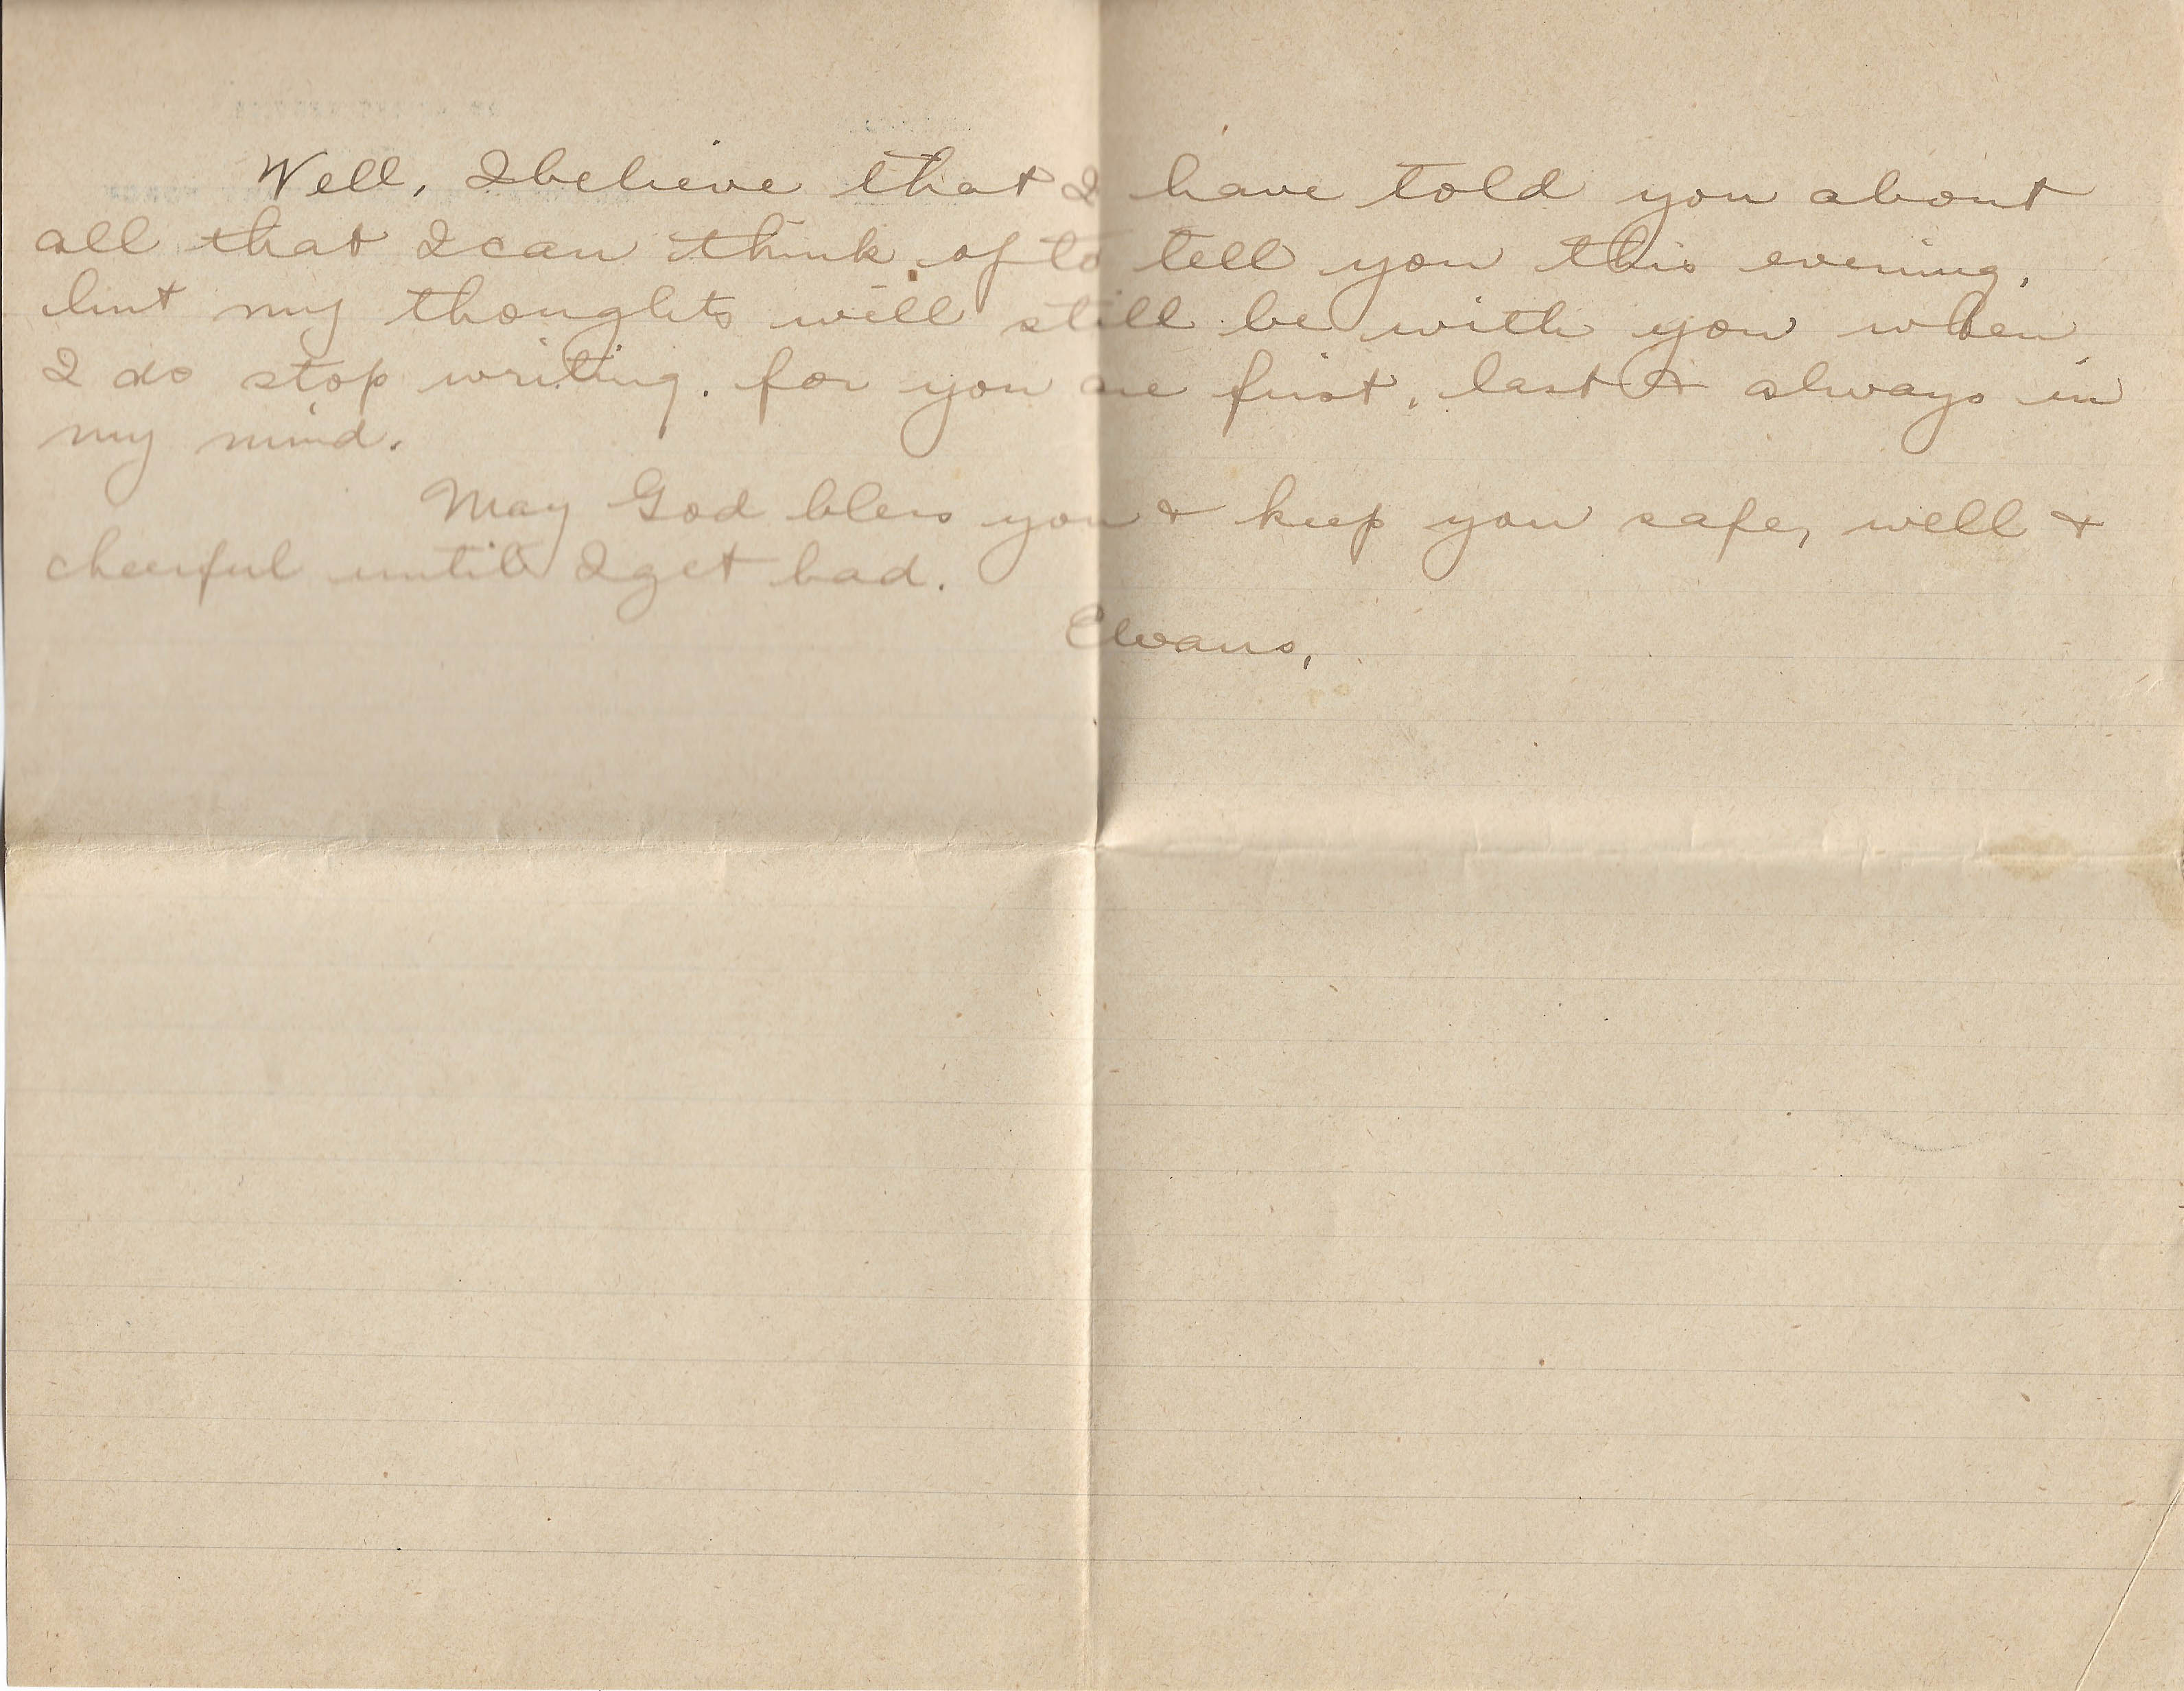 Well, I believe that I have told you about
all that I can think of to tell you this evening,
but my thoughts will still be with you when
I do stop writing. for you are first, last & always in
my mind.
May God bless you & keep you safe, well &
cheerful until I get bad.
Elvans,